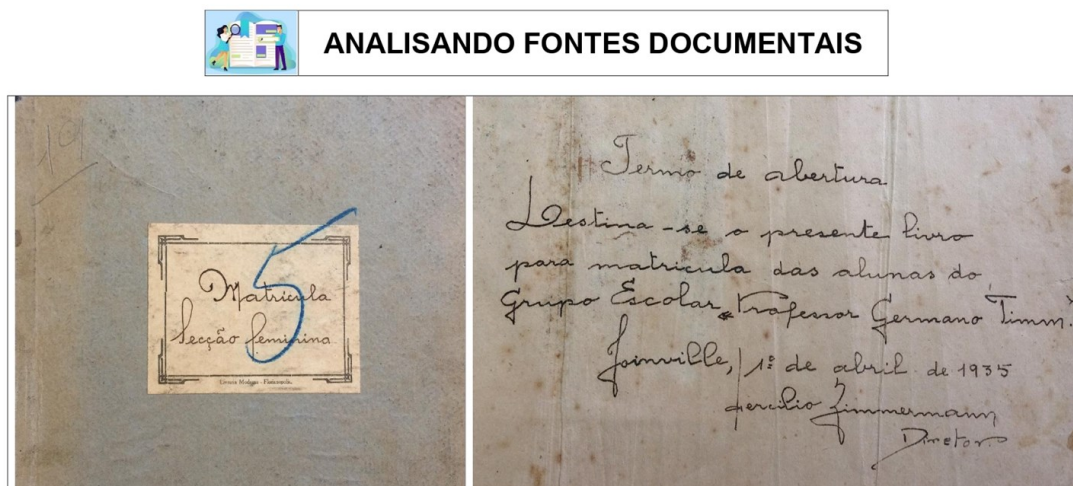 ANALISANDO FONTES DOCUMENTAIS
19
5
Matricula
Secção feminina
Termo de abertura
Destina-se o presente livro
para matricula das alunas do
Grupo Escolar "Professor Germano Timm."
Joinville, 1º de abril de 1935
Zimmermann
Diretor